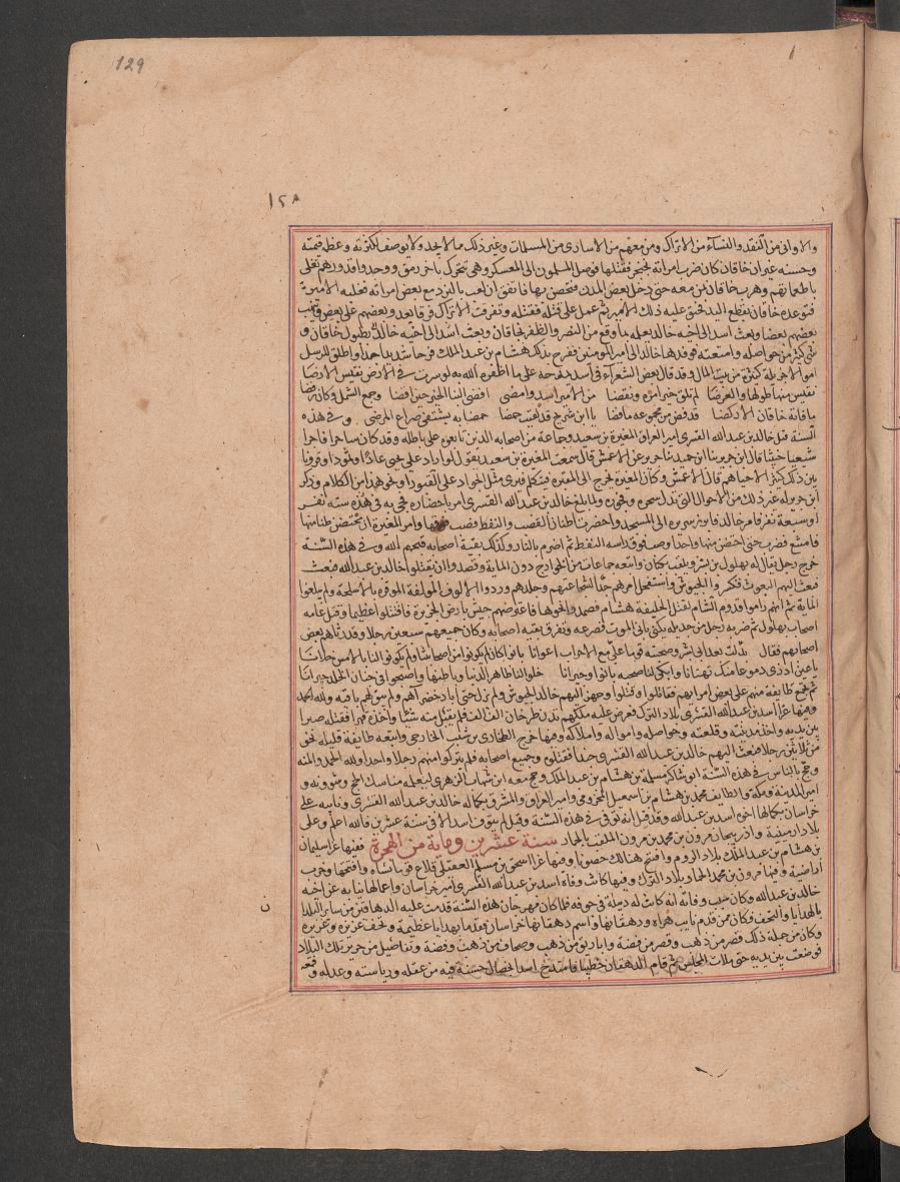 129
١٢٨
والاواني من النقد والنساء من الاتراك ومن معهم من الاسارى من المسلمات وغير ذلك مما لا يحد ولا يوصف لكثرته وعظم قيمته
وحسنه غير ان خاقان كان ضرب امراته بخنجر فقتلها فوصل المسلمون الى المعسكر وهي تتحرك باخر رمق ووجدوا قدورهم تغلي
باطعماتهم وهرب خاقان بمن معه حتى دخل بعض المدن فتحصن بها فاتفق ان لعب بالنرد مع بعض امرائه فغلبه الامير
فتوعده خاقان بقطع اليد فحنق عليه ذلك الامير ثم عمل على قتله فقتله وتفرقت الاتراك فرقا يعدو بعضهم على بعض
بعضهم بعضا وبعث اسد الى اخيه خالد يعلمه بما وقع من النصر والظفر بخاقان وبعث اسد الى اخيه خالد بطبول خاقان و
شي كثير من حواصله وامتعته فوفدها خالد الى امير المومنين ففرح بذلك هشام بن عبد الملك فرحا شديدا جدا واطلق للرسل
اموالا جزيلة كثيرة من بيت المال وقد قال بعض الشعراء في اسد يمدحه على ما اظفره الله به لو سرت في الارض تقيس الارضا
تقيس منها طولها والعرضا لم تلق خيرا مرة ونقضا من الامير اسد وامضى افضى الينا الخير حتى افضا وجمع الشمل وكان رفضا
ما فاته خاقان الا ركضا قد فض من جموعه ما فضا يا ابن شريح قد لقيت حمضا حمضا به يشتفى صداع المرضى وفي هذه
السنة قتل خالد بن عبد الله القسري امير العراق المغيرة بن سعيد وجماعة من اصحابه الذين تابعوه على باطله وقد كان ساحرا فاجرا
شيعيا خبيثا قال ابن جرير ثنا ابن حميد ثنا جرير عن الاعمش قال سمعت المغيرة بن سعيد يقول لو اراد علي يحيى عادا وثمودا وقرونا
بين ذلك كثيرا لاحياهم قال الاعمش وكان المغيرة يخرج الى المقبرة فيتكلم فيرى مثل الجراد على القبور او نحو هذا من الكلام وذكر
ابن جرير له غير ذلك من الاحوال التي تدل سحره وفجوره ولما بلغ خالد بن عبد الله القسري امر باحضاره فجي به في هذه ستة نفر
او سبعة نفر فامر خالد فابرز سريره الى المسجد واحضر باطنان القصب والنفط فصب فوقها وامر المغيرة ان يحتضن طنا منها
فامتنع فضرب حتى احتضن منها واحدا وصب فوق راسه النفط ثم اضرم بالنار وكذلك بقية اصحابه قبحهم الله وفي هذه السنة
خرج رجل يقال له بهلول بن بشر ويلقب بكثارة واتبعه جماعات من الخوارج دون المايه وقصدوا ان يقتلوا خالد بن عبد الله فبعث
فبعث اليهم البعوث فكسروا الجيوش واستفحل امرهم جدا لشجاعتهم وجلدهم وردوا الالوف المولفة الموقرة بالاسلحة ولم يبلغوا
الماية ثم انهم راموا قدوم الشام لقتل الخليفة هشام فصمدوا نحوها فاعترضهم جيش بارض الجزيرة فاقتتلوا عظيما وقتل عامه
اصحاب بهلول ثم ضربه رجل من جديله يكنى بابي الموت فصرعه وتفرق بقية اصحابه وكان جميعهم سبعين رجلا وقد رثاهم بعض
اصحابهم فقال بدلت بعد ابي بشر وصحبته قوما علي مع الاحزاب اعوانا بانوا كان لم يكونوا من اصحابنا ولم يكونوا لنا بالامس خلانا
يا عين اذري دموعا منك تهتانا وابكي لنا صحبة بانوا وجيرانا خلوا لنا ظاهر الدنيا وباطنها واصبحوا في جنان الخلد جيرانا
ثم تجمع طايفة منهم على بعض امرايهم فقاتلوا وقتلوا وجهز اليهم خالد الجيوش ولم يزل حتى اباد خضراهم ولم يبق لهم باقية ولله الحمد
وفيها غزا اسد بن عبد الله القسري بلاد الترك فعرض عليه ملكهم بدر طرخان الف الف فلم يقبل منه شيئا واخذه قهرا فقتله صبرا
بين يديه واخذ مدينته وقلعته وحواصله وامواله واملاكه وفيها خرج الصحارى بن شبيب الخارجي واتبعه طايفة قليله نحو
من ثلاثين رجلا فبعث اليهم خالد بن عبد الله القسري جندا فقتلوه وجميع اصحابه فلم يتركوا منهم رجلا واحدا ولله الحمد والمنه
وحج بالناس في هذه السنة ابو شاكر مسلمة بن هشام بن عبد الملك وحج معه ابن شهاب الزهري ليعلمه مناسك الحج وشؤونه و
امير المدينة ومكة والطايف محمد بن هشام بن اسمعيل المخزومي وامير العراق والمشرق بكماله خالد بن عبد الله القسري ونايبه على
خراسان بكمالها اخوه اسد بن عبد الله وقد قيل انه توفي في هذه السنة وقيل لم يتوف اسد الا في سنة عشرين فالله اعلم وعلى
بلاد ارمينية واذربيجان مرون بن محمد بن مرون الملقب بالحمار سنة عشرين وماية من الهجرة ففيها غزا سليمان
بن هشام بن عبد الملك بلاد الروم وافتتح هنالك حصونا وفيها غزا اسحق بن مسلم العقيلي قلاع تومانشاه وافتتحها وخرب
اراضيه وفيها مرون بن محمد الحمار بلاد الترك وفيها كانت وفاة اسد بن عبد الله القسري امير خراسان واعمالها نيابة عن اخيه
خالد بن عبد الله وكان سبب وفاته انه كانت له دبيلة في جوفه فلما كان مهرجان هذه السنة قدمت عليه الدهاقين من ساير البلاد
بالهدايا والتحف فكان ممن قدم نايب هراه ودهقانها واسم دهقانها خراسان فقدم بهدايا عظيمة وتحف عزيزه
وكان من جملة ذلك قصر من ذهب وقصر من فضة واباريق من ذهب وصحاف من ذهب وفضة وتفاصيل من حرير تلك البلاد
فوضعت بين يديه حتى ملات المجلس ثم قام الدهقان خطيبا فامتدح اسدا بخصال حسنة فيه من عقله ورياسته وعدله و